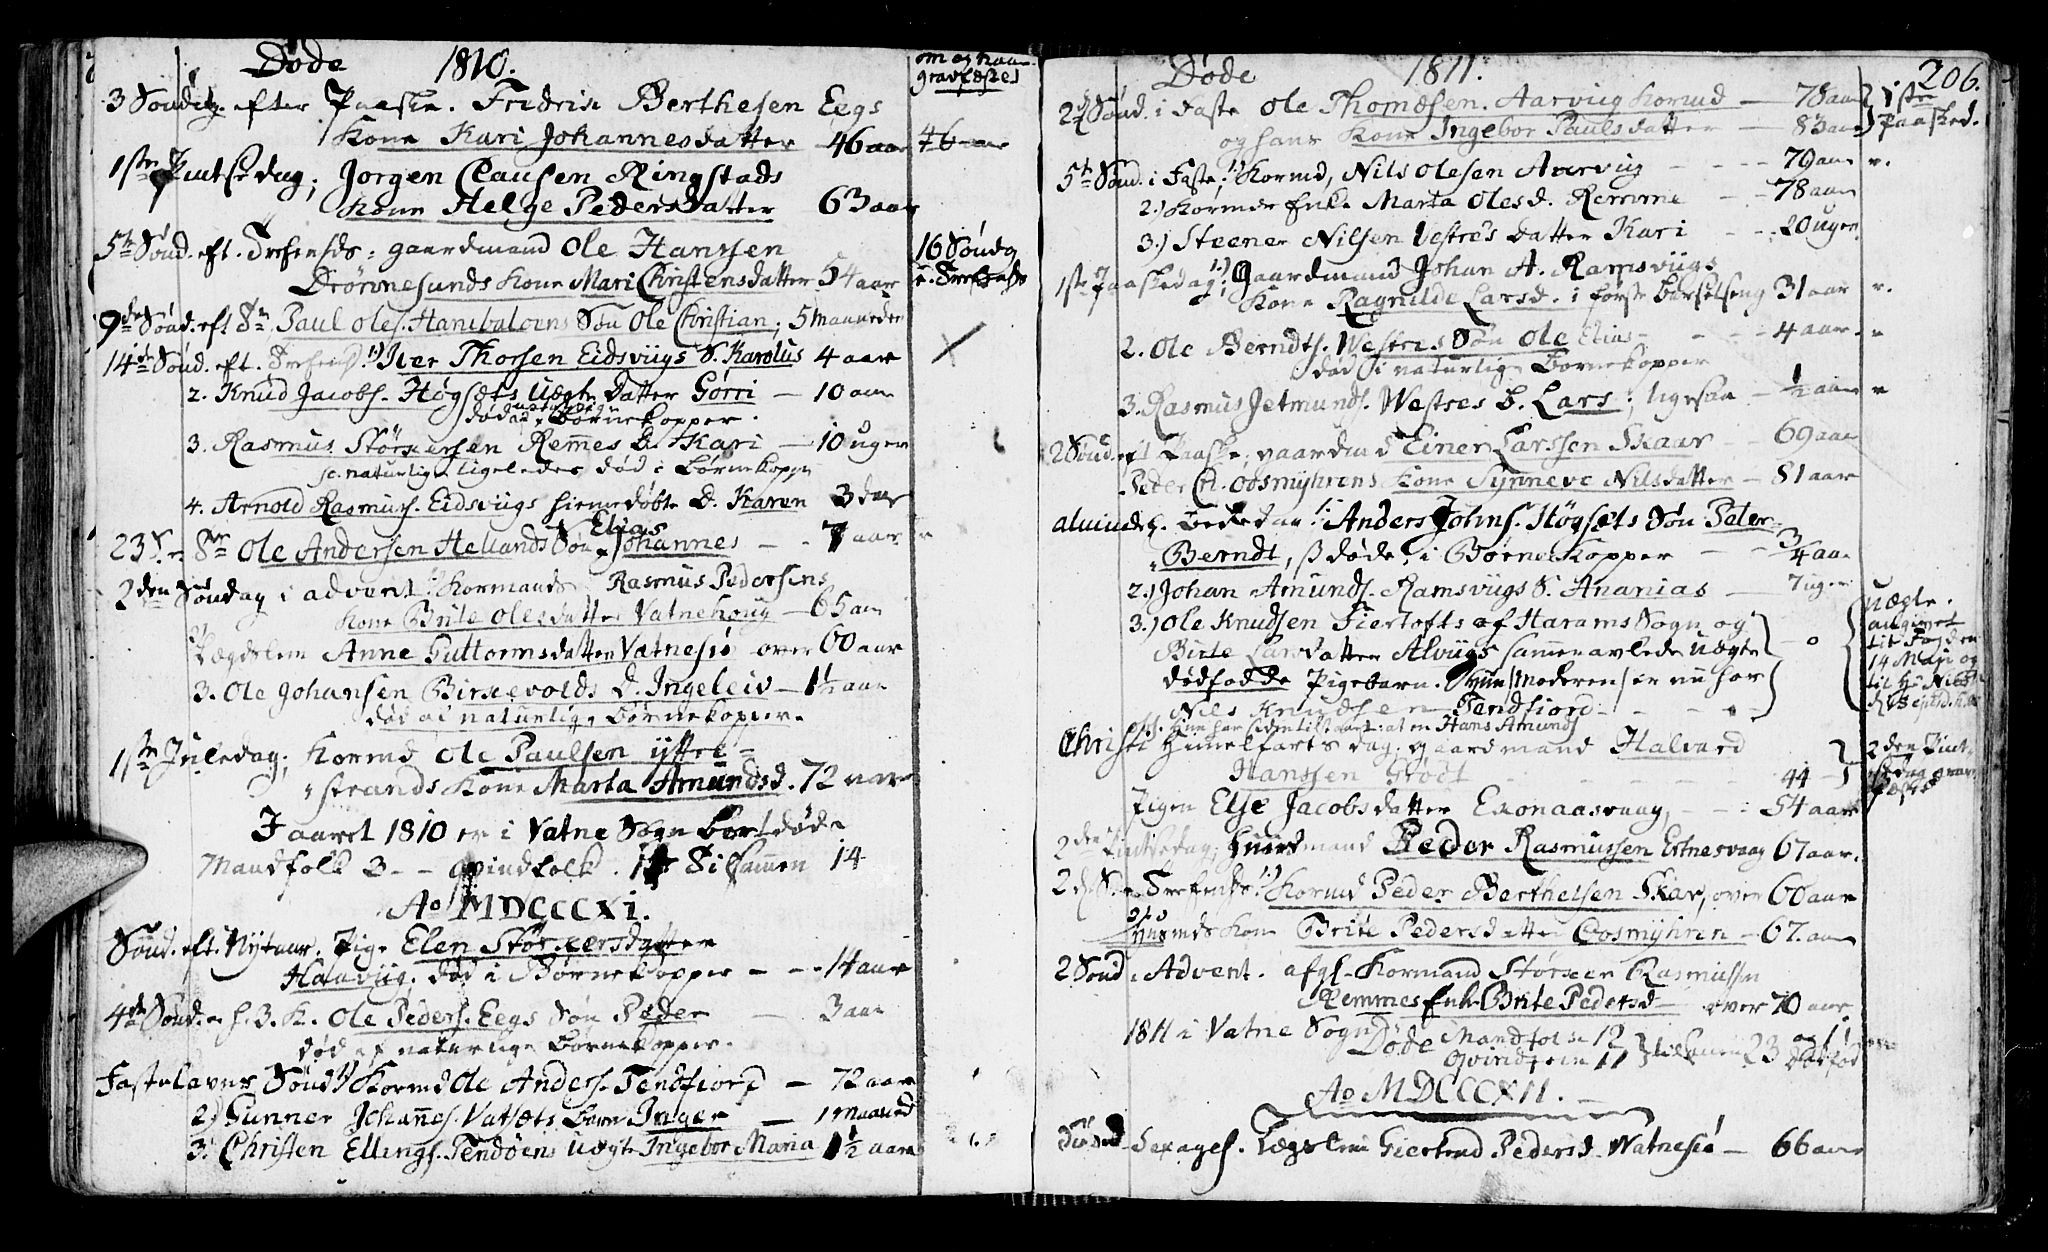 Døde 1810.
om og naar
gravfæstes
3 Søndag efter Paaske. Fridrik Berthesen Eegs
Kone Kari Johannesdatter 46 aar
1ste Pintsedag; Jørgen Clausen Ringstads
Kone Helge Pedersdatter 63 aar
5te Sønd. eft. Trefoldh: gaardmand Ole Hanssen
16 Søndag
Drønnesunds Kone Mari Christensdatter 54 aar
9de Sønd. eft Paul Oles. Søn Ole Christian, 5 Maaneder
14de Sønd. eft. 1.) Iver Thorsen Eidsviigs S. Karolus 4 aar
2. Knud Jacobs. Høgsæts uægte Datter Gørri — 10 aar
død af Børnekopper.
3. Rasmus Størkersen Remmes D. Kari — 10 uger
naturlig ligeledes død i Børnekopp
4. Arnold Rasmus. Eidsviigs hiemedøbte D. Karen 3 dage
23 S. Ole Andersen Hellands Søn Elias Johannes — 7 aar
2den Søndag i advent: Kormands Rasmus Pedersens
Kone Brite Olesdatter Vatnehoug — 65 aar
Lægdslem Anne Guttormsdatter Vatnesiø over 60 aar
3. Ole Johansen Birkevolds D. Ingeleiv — 1½ aar
død af naturlige Børnekopper.
1ste Juledag; Kormd Ole Paulsen yttre-
strands Kone Marta Amundsd. 72 aar
I aaret 1810 er i Vatne Sogn bortdøde
Mandfolk 3 - - qvindfolk 11 Tilsammen 14
Ao MDCCCXI.
Sønd. eft. Nytaar. Pige Elen Størkersdatter
Halsviig. død i Børnekopper - - 14 aar
4de Sønd. e. h. 3. K. Ole Peders. Eegs Søn Peder — 3 aar
død af naturlige Børnekopper.
Fastelavns Sønd 1) Kormd Ole Anders. Tendfiord — 72 aar
2) Gunner Johannes. Vatsæts barn Inger — 1 Maaned
3. Christen Ellings. Tendøens uægte Ingebor Maria 1½ aar
Døde 1811. 206.
2den Sønd. i Faste Ole Thomæsen Aarviig Kormd — 78 aar
1ste Paasked.
og hans Kone Ingebor Paulsdatter — 83 aar
5te Sønd. i Faste, 1) Kormd, Nils Olesen Aarviig - - 79 aar
2.) Kormds Enke Marta Olesd. Remme - 78 aar
3.) Steener Nilsen Vestres Datter Kari - - 20 uger
1ste Paaskedag; 1.) Gaardmand Johan A. Ramsviigs
Kone Ragnilde Larsd. i første barselseng 31 aar
2. Ole Berndts. Westres Søn Ole Elias - - 4 aar
død i naturlige Børnekopper
3. Rasmus Jetmunds. Westres b. Lars; ligesaa - ½ aar
2 Sønd. eft Paaske; gaardmd Einer Larssen Skaar - - 69 aar
Peder Ch. Oosmyhrens Kone Synneve Nilsdatter — 81 aar
almindel. bededag 1: Anders Johns. Høgsæts Søn Peter
Berndt, døde, i Børnekopper - - ¾ aar
2.) Johan Amunds. Ramsviigs S. Ananias — 7 uger
3.) Ole Knudsen Fiertofts af Harams Sogn og
Birte Larsdatter Alviigs sammenavlede uægte
dødfødde Pigebarn. Hun /:Moderen:/ er nu hos
Niels Knudsen Tendfiord - - -
uægte.
angivet
til Fogden
14 Maji og
Hun har siden tilstaaet: at en Hans Amunds
Christi Himelfarts dag; gaardmand Halvard
Hanssen Grødt - - - 44
2den Pint-
sedag grav-
fæstet
Pigen Else Jacobsdatter Exonaasvaag, - - 54 aar
2den Pintsedag; Huusmand Peder Rasmussen Estnesvaag 67 aar.
2 d. S. e. Trefoldh: 1) Kormd Peder Berthelsen Skar, over 60 aar
Huusmds Kone Brite Pedersdatter Oosmyhren — 67. aar
2 Sønd. i Advent. afgl. Kormand Størker Rasmussen
Remmes Enke Brite Pedersd — over 70 aar
1811 i Vatne Sogn Døde Mandfolk 12 og 1
Qvindfolk 11 } tilsammen 23 dødfød
Ao MDCCCXII.
Sønd. Sexages. Lægslem Giertrud Pedersd. Watnesiø — 66 aar